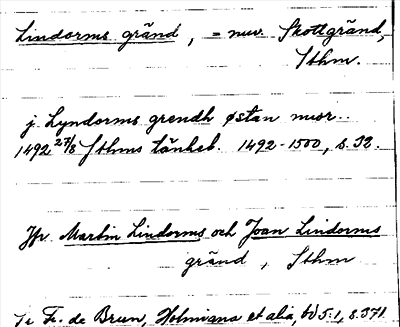 Lindorms gränd, = nuv. Skottgränd,
Sthm.
j. Lyndorms grendh østan mur..
1492 27/8 Sthms tänkeb. 1492-1500, s. 32.
Jfr Martin Lindorms och Joan Lindorms
gränd, Sthm
Fr. de Brun, Holmiana et alia, bd 5:1, s. 371